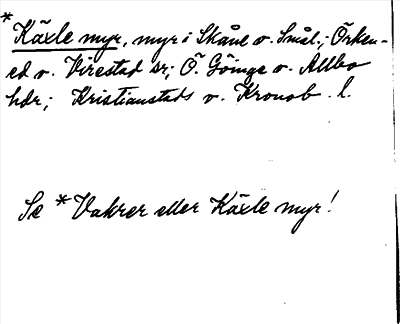 *
Käxle myr, myr i Skåne o. Smål.; Örken-
ed o. Virestad sr; Ö. Göinge o. Allbo
hdr; Kristianstads o. Kronob. l.
Se *Vakrer eller Käxle myr!